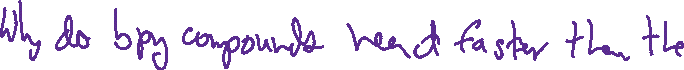 Why do bpy compounds react faster than the